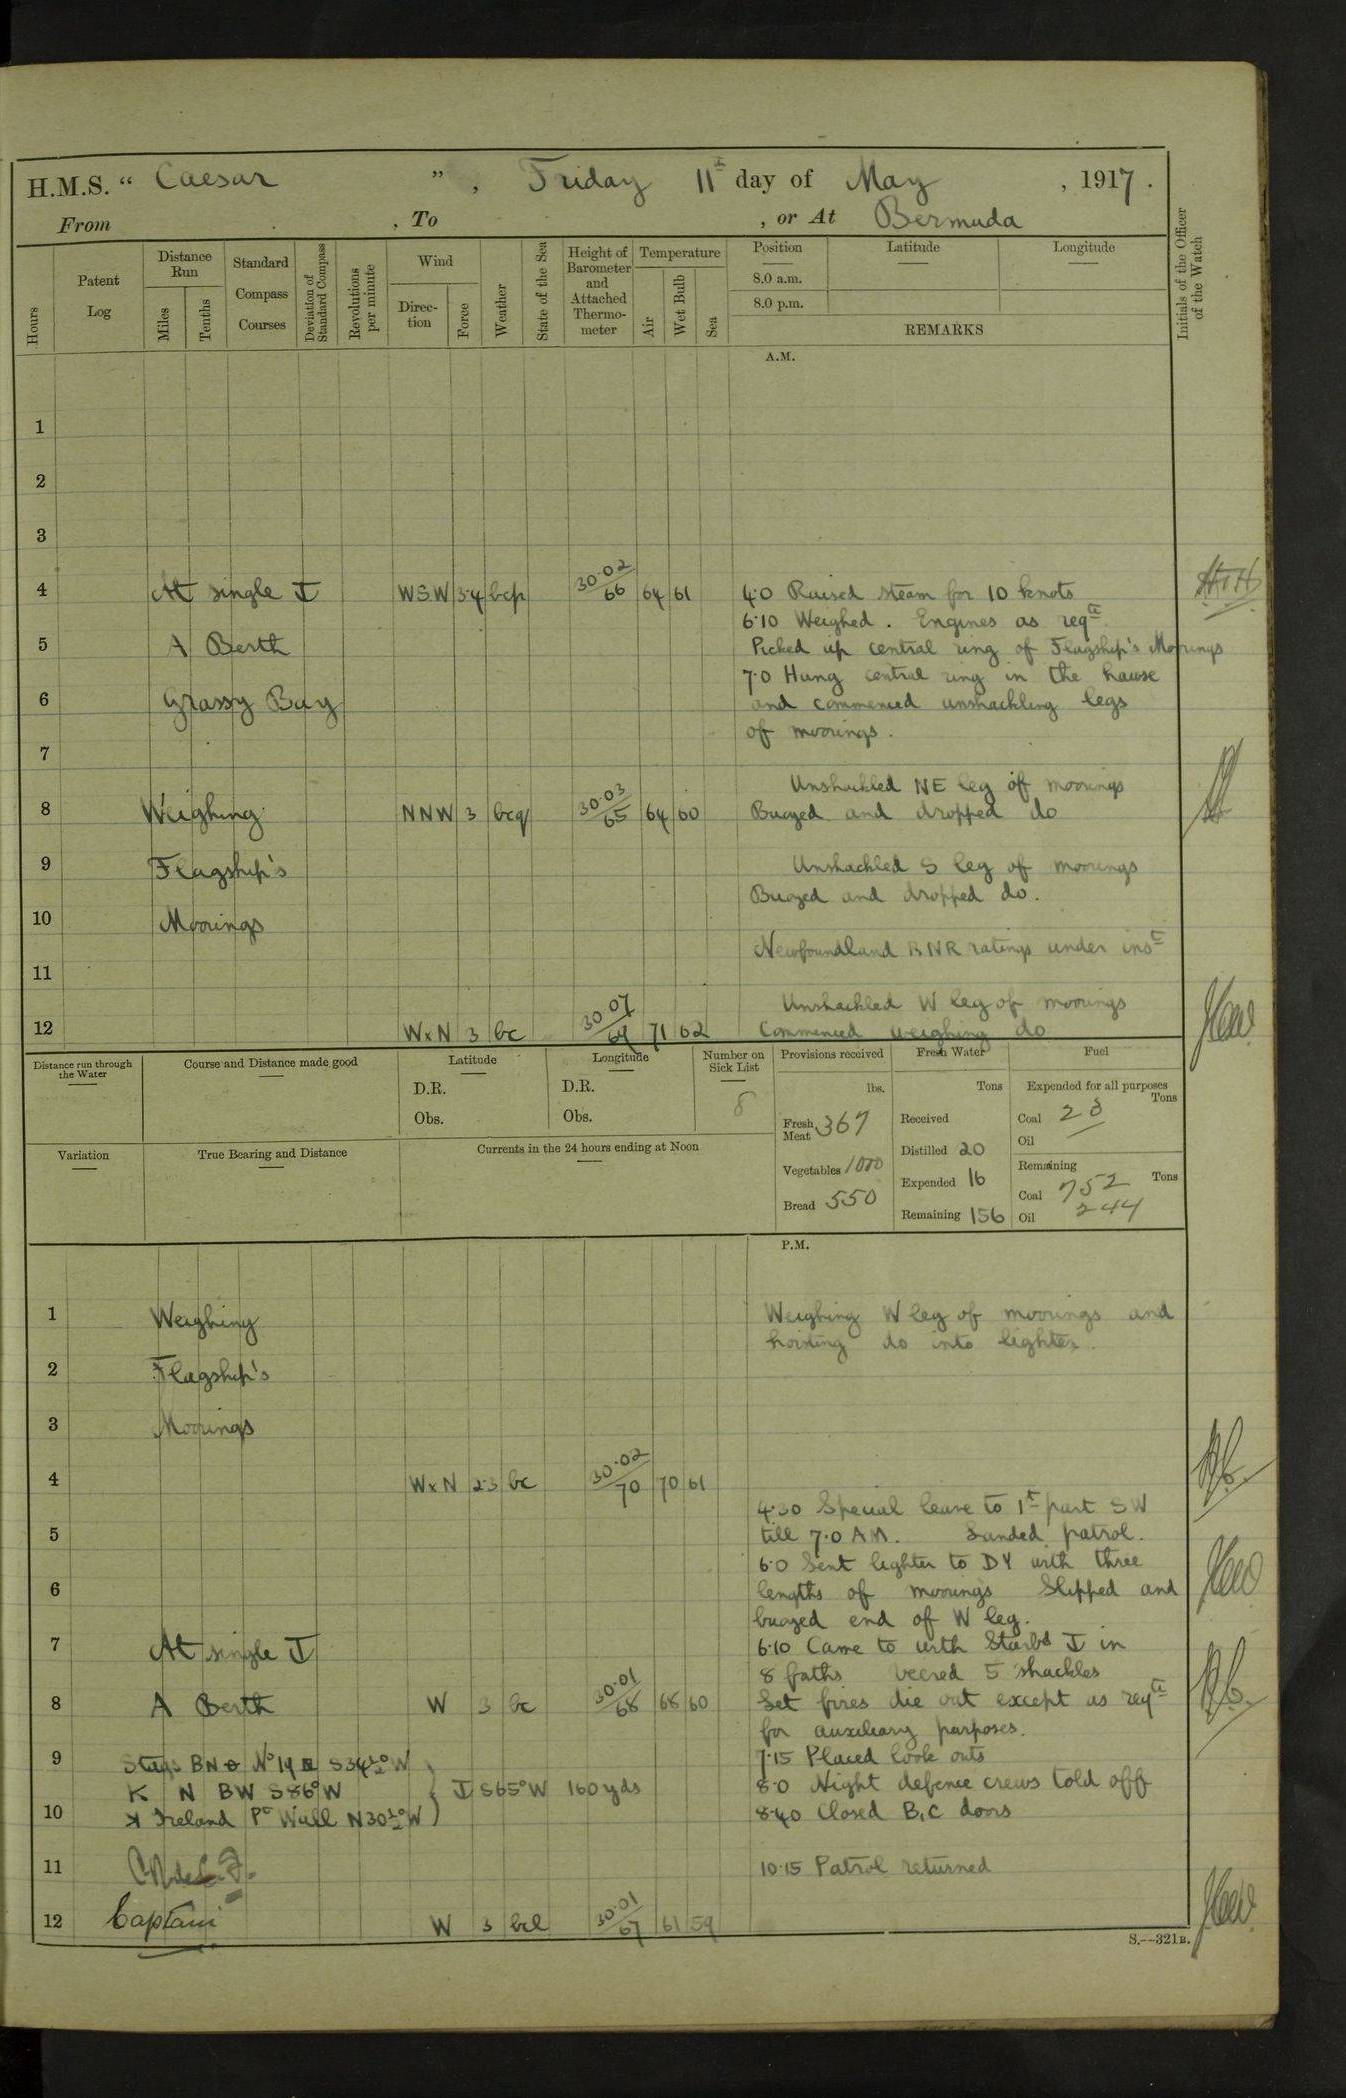 H.M.S. " Caesar " , Friday 11th day of May , 1917 .
From , To , or At Bermuda
Hours
Patent Log
Distance Run
Miles
Tenths
Standard Compass Courses
Deviation of Standard Compass
Revolutions per minute
Wind
Direc-tion
Force
Weather
State of the Sea
Height of Barometer and Attached Thermo-meter
Temperature
Air
Wet Bulb
Sea
Position
8.0 a.m.
8.0 p.m.
Latitude
Longitude
REMARKS
Initials of the Officer of the Watch
A.M.
1
2
3
4 At single WSW 3.4 bcp 30.02/66 64 61 4.0 Raised steam for 10 knots
6.10 Weighed . Engines as reqte
5 A Berth Picked up central ring of Flagship's Moorings
7.0 Hung central ring in the hawse
6 Grassy Bay and commenced unshackling legs
of moorings .
7
Unshackled NE leg of moorings
8 Weighing NNW 3 bcq 30.03/65 64 60 Buoyed and dropped do
9 Flagship's Unshackled S leg of moorings
Buoyed and dropped do.
10 Moorings
Newfoundland RNR ratings under inst
11
Unshackled W leg of moorings
12 WxN 3 bc 30.07/69 71 62 Commenced weighing do
Distance run through the Water
Course and Distance made good
Latitude
D.R.
Obs.
Longitude
D.R.
Obs.
Number on Sick List
8
Provisions received
lbs.
Fresh Meat 367
Vegetables 1000
Bread 550
Fresh Water
Tons
Received
Distilled 20
Expended 16
Remaining 156
Fuel
Expended for all purposes
Tons
Coal 28
Oil
Remaining
Tons
Coal 752
Oil 244
Variation
True Bearing and Distance
Currents in the 24 hours ending at Noon
P.M.
1 Weighing Weighing W leg of moorings and
hoisting do into lighter.
2 Flagship's
3 Moorings
4 WxN 2.3 bc 30.02/70 70 61
4.30 Special leave to 1st part SW
5 till 7.0 AM. Landed patrol.
6.0 Sent lighter to DY with three
6 lengths of moorings Slipped and
buoyed end of W leg.
7 At single 6.10 Came to with Starbd in
8 faths veered 5 shackles
8 A Berth W 3 bc 30.01/68 68 60 Let fires die out except as reqte
for auxiliary purposes.
9 Stags BN No 19 S34½°W 7.15 Placed look outs
K N BW S86°W S65°W 160yds 8.0 Night defence crews told off
10 Ireland Pt Wall N30½°W 8.40 Closed B,C doors
11 10.15 Patrol returned
Captain
12 W 3 bcl 30.01/67 61 59
S.—321B.